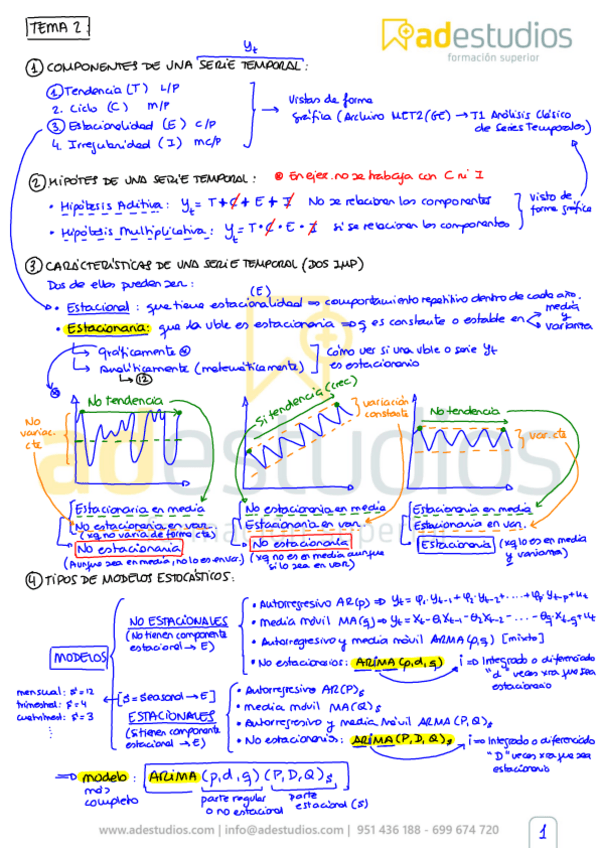 TEMA 2:
adestudios
formación superior
yt
① COMPONENTES DE UNA SERIE TEMPORAL:
① Tendencia (T) L/P
2. Ciclo (C) m/P
③ Estacionalidad (E) c/P
4. Irregularidad (I) mc/P
→ Vistas de forma
gráfica (Archivo MET2(GE) → T1 Análisis Clásico
de Series Temporales)
② HIPÓTES DE UNA SERIE TEMPORAL: ⊛ En ejer. no se trabaja con C ni I
• Hipótesis Aditiva: yt = T + C + E + I No se relacionan los componentes
• Hipótesis Multiplicativa: yt = T · C · E · I si se relacionan los componentes
Visto de
forma gráfica
③ CARACTERÍSTICAS DE UNA SERIE TEMPORAL (DOS IMP)
Dos de ellos pueden ser:
(E)
• Estacional: que tiene estacionalidad ⇒ comportamiento repetitivo dentro de cada año.
• Estacionaria: que la vble es estacionaria ⇒ q es constante o estable en
media
y
varianza
↳ gráficamente ⊛
↳ analíticamente (matemáticamente)
↳ ⑫
Cómo ver si una vble o serie yt
es estacionario
⊛
No tendencia
No
variac.
cte
Si tendencia (crec.)
variación
constante
No tendencia
var. cte
Estacionaria en media
No estacionaria en var.
(xq no varía de forma cte)
No estacionaria
(Aunque sea en media, no lo es en var.)
No estacionaria en media
Estacionaria en var.
No estacionaria
(xq no es en media aunque
si lo sea en var)
Estacionaria en media
Estacionaria en var.
Estacionaria (xq lo es en media
y varianza)
④ TIPOS DE MODELOS ESTOCÁSTICOS:
MODELOS
NO ESTACIONALES
(No tienen componente
estacional → E)
• Autorregresivo AR(p) ⇒ yt = φ1·yt-1 + φ2·yt-2 + ... + φp·yt-p + ut
• media móvil MA(q) ⇒
• Autorregresivo y media móvil ARMA (p,q) [mixto]
• No estacionarios: ARIMA (p,d,q)
i ⇒ Integrado o diferenciado
"d" veces xra que sea
estacionario
mensual: s=12
trimestral: s=4
cuatrimest: s=3
⋮
[S = Seasonal → E]
ESTACIONALES
(Si tienen componente
estacional → E)
• Autorregresivo AR(P)s
• media móvil MA(Q)s
• Autorregresivo y media Móvil ARMA (P,Q)s
• No estacionarios: ARIMA (P,D,Q)s
i ⇒ Integrado o diferenciado
"D" veces xra que sea
estacionario
⇒ modelo: ARIMA (p,d,q) (P,D,Q)s
más
completo
parte regular
o no estacional
parte
estacional (s)
www.adestudios.com | info@adestudios.com | 951 436 188 - 699 674 720
1